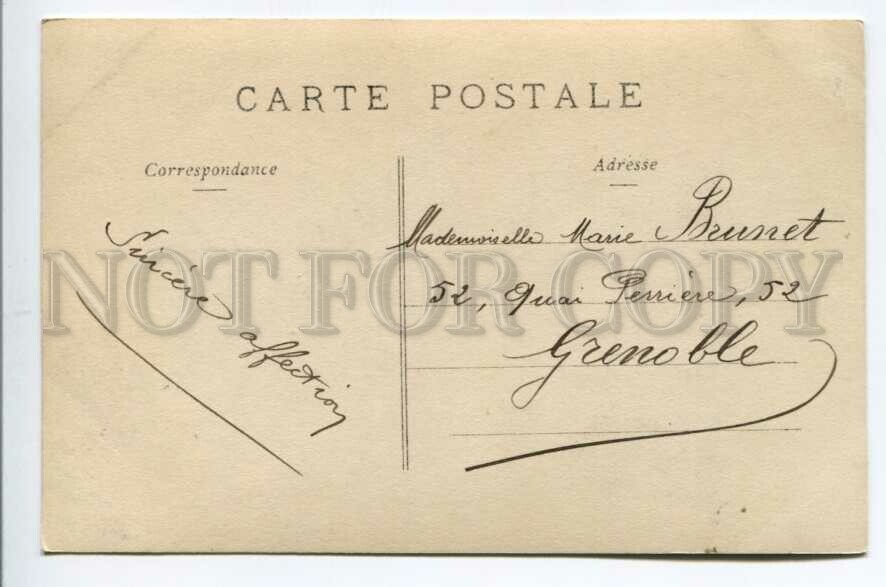 CARTE POSTALE
Correspondance
Adresse
Sincère affection
Mademoiselle Marie Brunet
52, Quai Perrière, 52
Grenoble
NOT FOR COPY